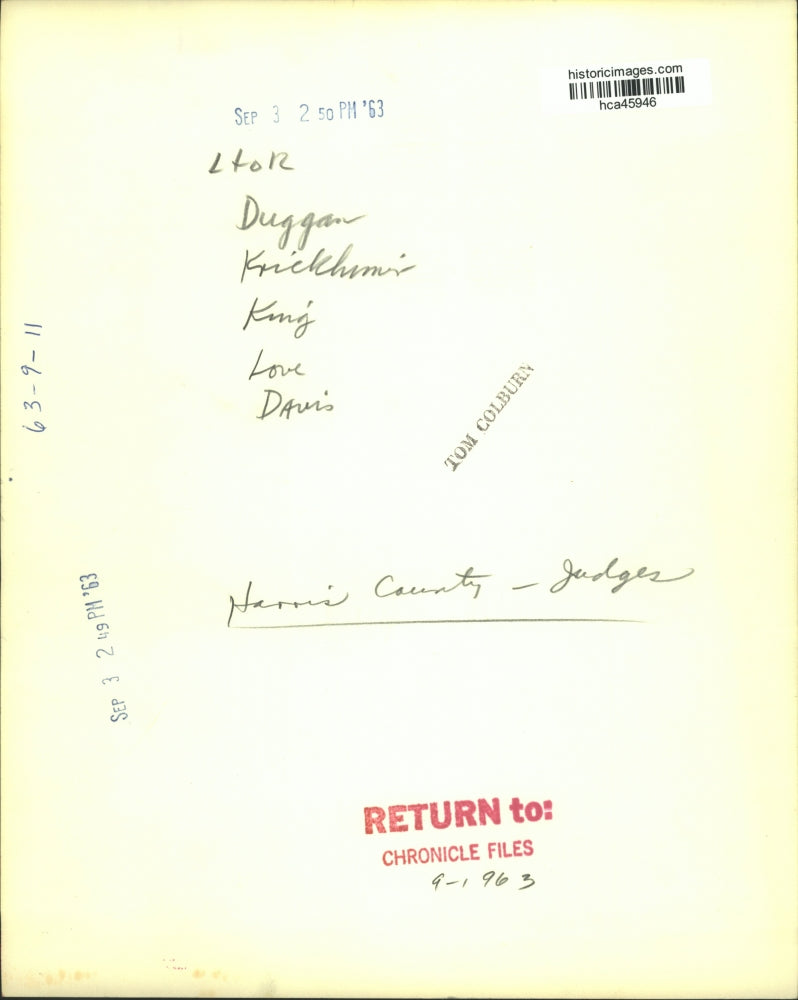 historicimages.com
hca45946
SEP 3 2 50 PM '63
L to R
Duggan
Krickhimir
King
Love
Davis
63-9-11
TOM COLBURN
Harris County - Judges
SEP 3 2 49 PM '63
RETURN to:
CHRONICLE FILES
9-1963